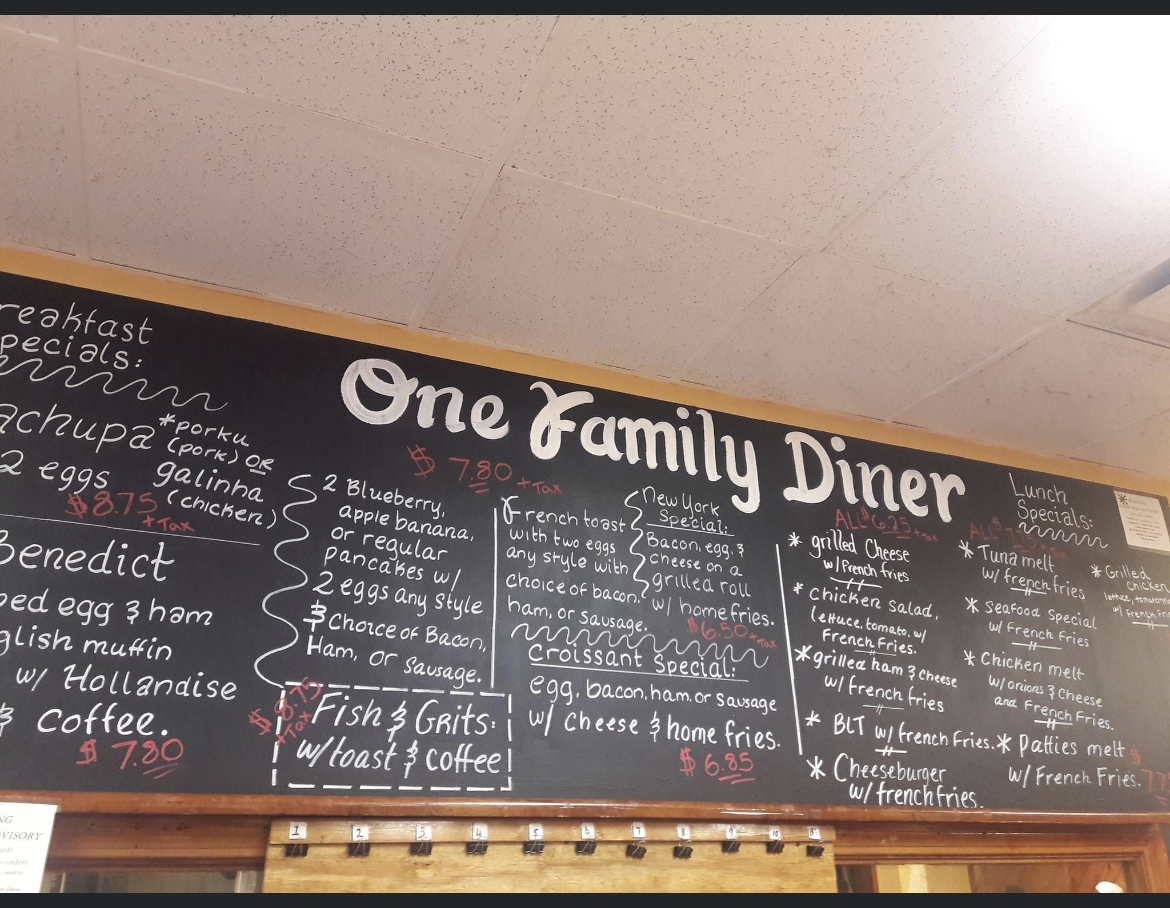 reakfast
pecials:
achupa
2 eggs
*porku
(pork) OR
galinha
(chicken)
$8.75
+Tax
Benedict
ed egg & ham
glish muffin
w/ Hollandise
& coffee.
$7.80
One Family Diner
$7.80 +Tax
2 Blueberry,
apple banana,
or regular
Pancakes w/
2 eggs any style
& Choice of Bacon,
Ham, or Sausage.
Fish & Grits:
w/toast & coffee
French toast
with two eggs
any style with
choice of bacon,
ham, or sausage.
New York
Special:
Bacon, egg, &
cheese on a
grilled roll
w/ home fries.
$6.50 +Tax
Croissant Special:
egg, bacon, ham, or sausage
w/ cheese & home fries.
$6.85
ALL $6.25 +Tax
* grilled Cheese
w/ French fries
* chicken salad,
lettuce, tomato, w/
French Fries.
* grilled ham & cheese
w/ french fries
* BLT w/ french Fries.
* Cheeseburger
w/ french fries.
Lunch
Specials:
ALL
* Tuna melt
w/ french fries
* Seafood Special
w/ French Fries
* Chicken melt
w/ onions & cheese
and French Fries.
* Patties melt
w/ French Fries.
* Grilled
chicken
lettuce,
NG
VISORY
1 2 3 4 5 6 7 8 9 10